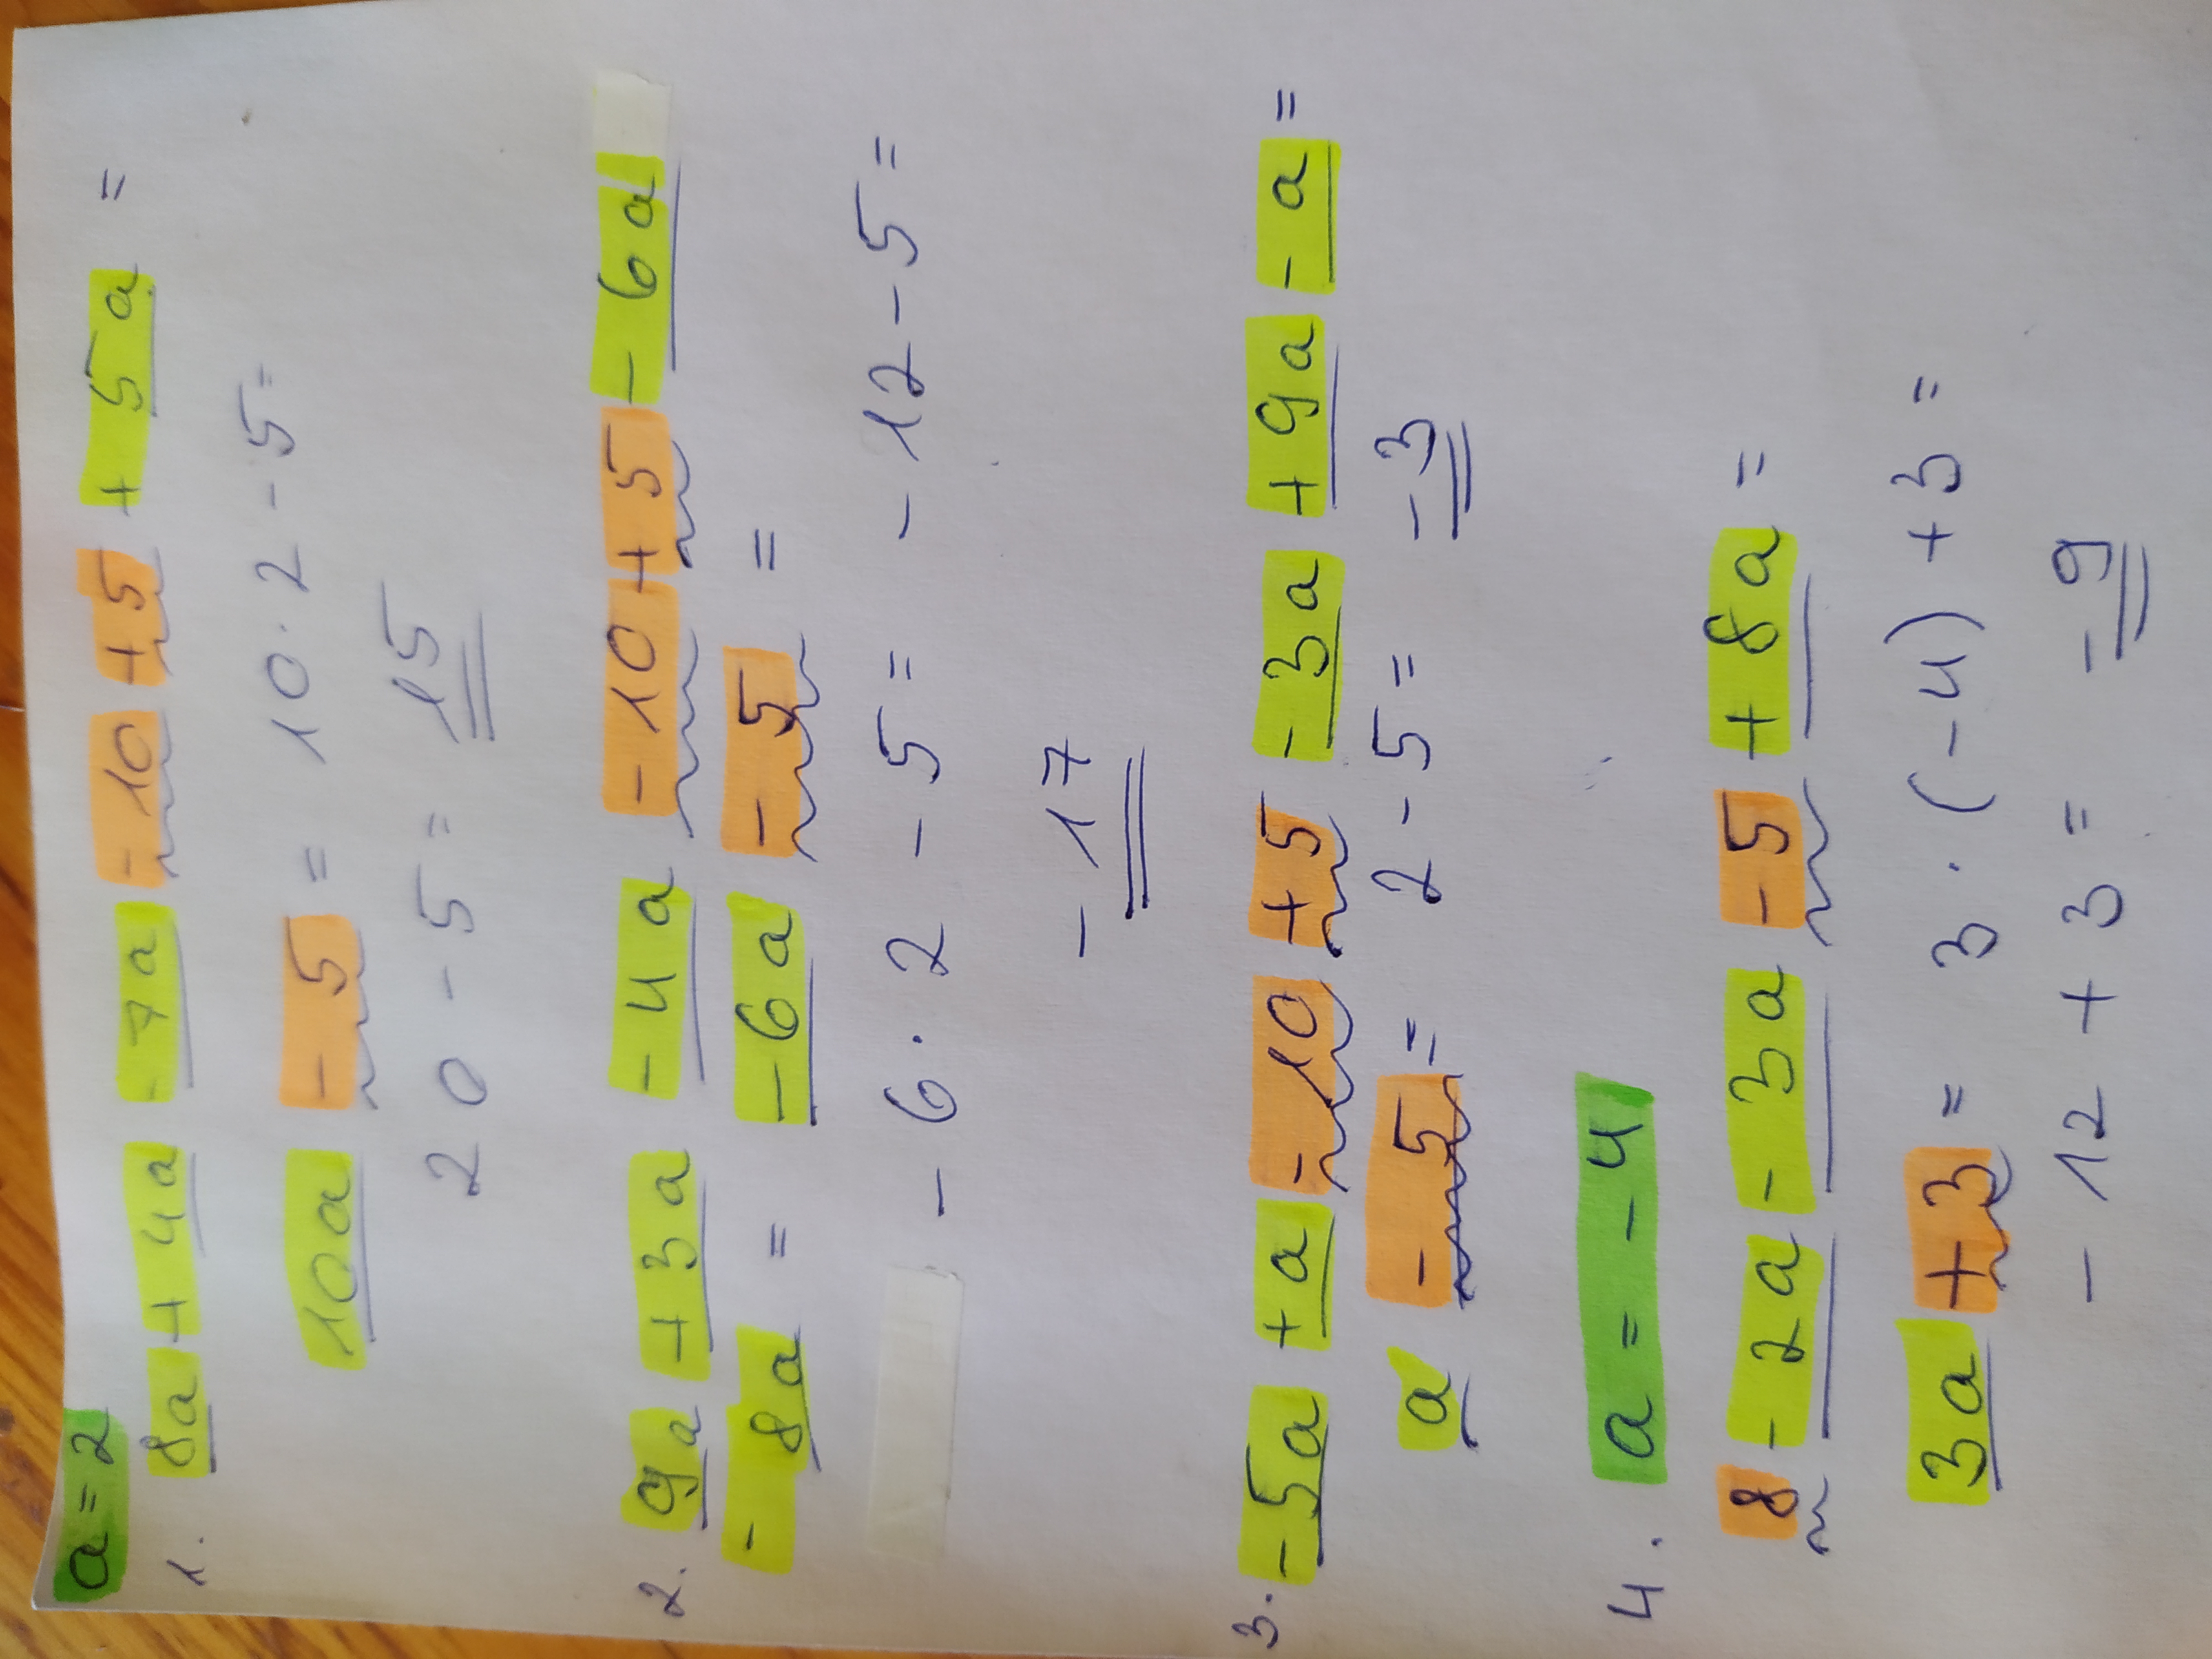 a = 2
1. 8a + 4a - 7a - 10 + 5 + 5a =
10a - 5 = 10 · 2 - 5 =
20 - 5 = 15
2. 9a + 3a - 4a - 10 + 5 - 6a
- 8a = - 6a - 5 =
- 6 · 2 - 5 = - 12 - 5 =
- 17
3. - 5a + a - 10 + 5 - 3a + 9a - a =
a - 5 = 2 - 5 = - 3
4. a = - 4
8 - 2a - 3a - 5 + 8a =
3a + 3 = 3 · (-4) + 3 =
- 12 + 3 = - 9